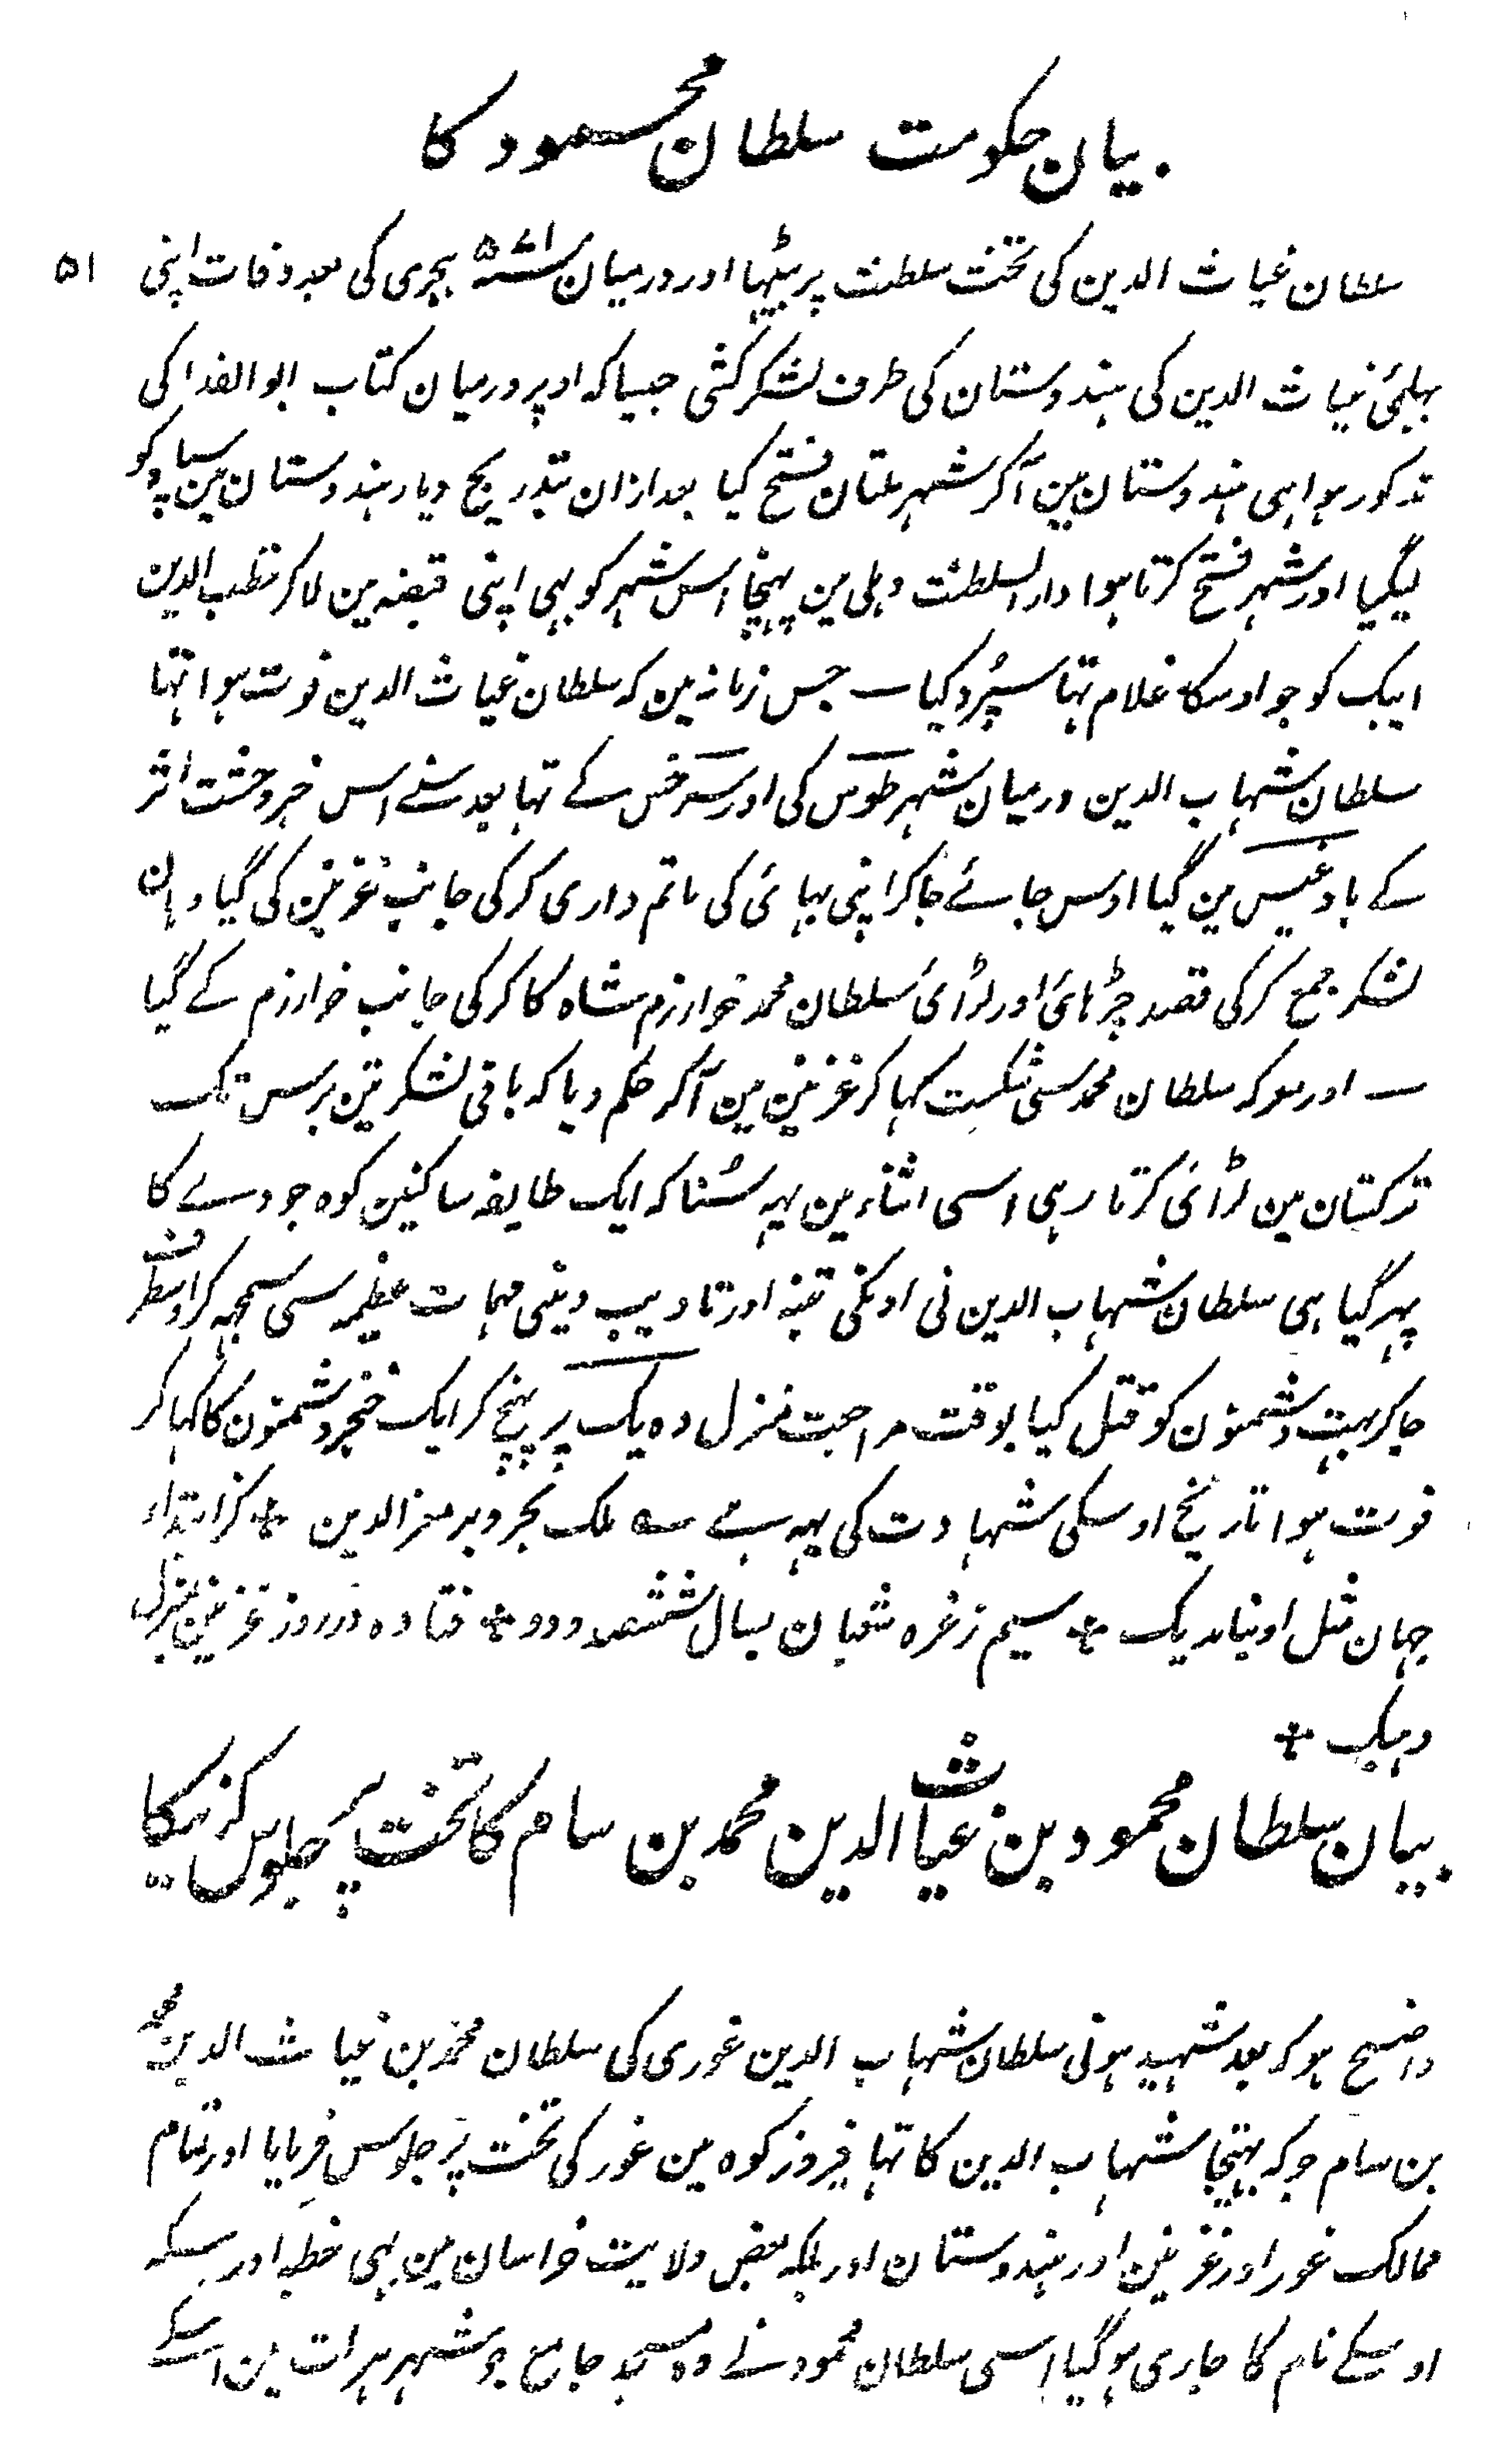 بیان حکومت سلطان محمود کا
سلطان غیاث الدین کی تخت سلطنت پر بیٹہا اور درمیان ۵۷۱ سنہ ہجری کی بعد وفات اپنی ۵۱
بہائی غیاث الدین کی ہندوستان کی طرف لشکر کشی جیسا کہ اوپر درمیان کتاب ابو الفدا کی
مذکور ہوا ہی ہندوستان مین آکر شہر ملتان فتح کیا بعد ازان بتدریج دیار ہندوستان مین سپاہ کو
لیگیا اور شہر فتح کرتا ہوا دار السلطنت دہلی مین پہنچا اس شہر کو بہی اپنی قبضہ مین لاکر قطب الدین
ایبک کو جو اوسکا غلام تہا سپُرد کیا ــ جس زمانہ مین کہ سلطان غیاث الدین فوت ہوا تہا
سلطان شہاب الدین درمیان شہر طوس کی اور سرخس کے تہا بعد سننے اس خبر وحشت اثر
کے بادغیس مین گیا اوس جائے جاکر اپنی بہائی کی ماتم داری کرکی جانب غزنین کی گیا وہان
لشکر جمع کرکی قصد چڑہائی اور لڑائی سلطان محمد خوارزم شاہ کا کرکی جانب خوارزم کے گیا
ــ اور معرکہ سلطان محمد سی شکست کہا کر غزنین مین آکر حکم دیا کہ باقی لشکر تین برس تک
ترکستان مین لڑائی کرتا رہی اسی اثناء مین یہہ سُنا کہ ایک طایفہ ساکنین کوہ جود سے کا
پہر گیا ہی سلطان شہاب الدین نی اونکی تنبیہ اور تادیب دینی مہمات عظیمہ سی سمجہہ کر اوسطرف
جاکر بہت دشمنون کو قتل کیا بوقت مراجعت منزل دہ یک پر پہنچ کر ایک خنجر دشمنون کا کہا کر
فوت ہوا تاریخ اوسکی شہادت کی یہہ ہے ؎ ملک بحر و بر معز الدین ❊ کز ابتداء
جہان مثل او نیامد یک ❊ سیم ز غرہ شعبان بسال ششصد و دو ❊ فتادہ در روز غزنین بمنزل
دہیک ❊
بیان سلطان محمود بن غیاث الدین محمد بن سام کا تخت پر جلوس کرنیکا
واضح ہو کہ بعد شہید ہونی سلطان شہاب الدین غوری کی سلطان محمد بن غیاث الدین محمد
بن سام جو کہ بہتیجا شہاب الدین کا تہا فیروز کوہ مین غور کی تخت پر جلوس فرمایا اور تمام
ممالک غور اور غزنین اور ہندوستان اور بلکہ بعض ولایت خراسان مین بہی خطبہ اور سکہ
اوسکے نام کا جاری ہو گیا اسی سلطان محمود نے وہ مسجد جامع جو شہر ہرات مین اسکے